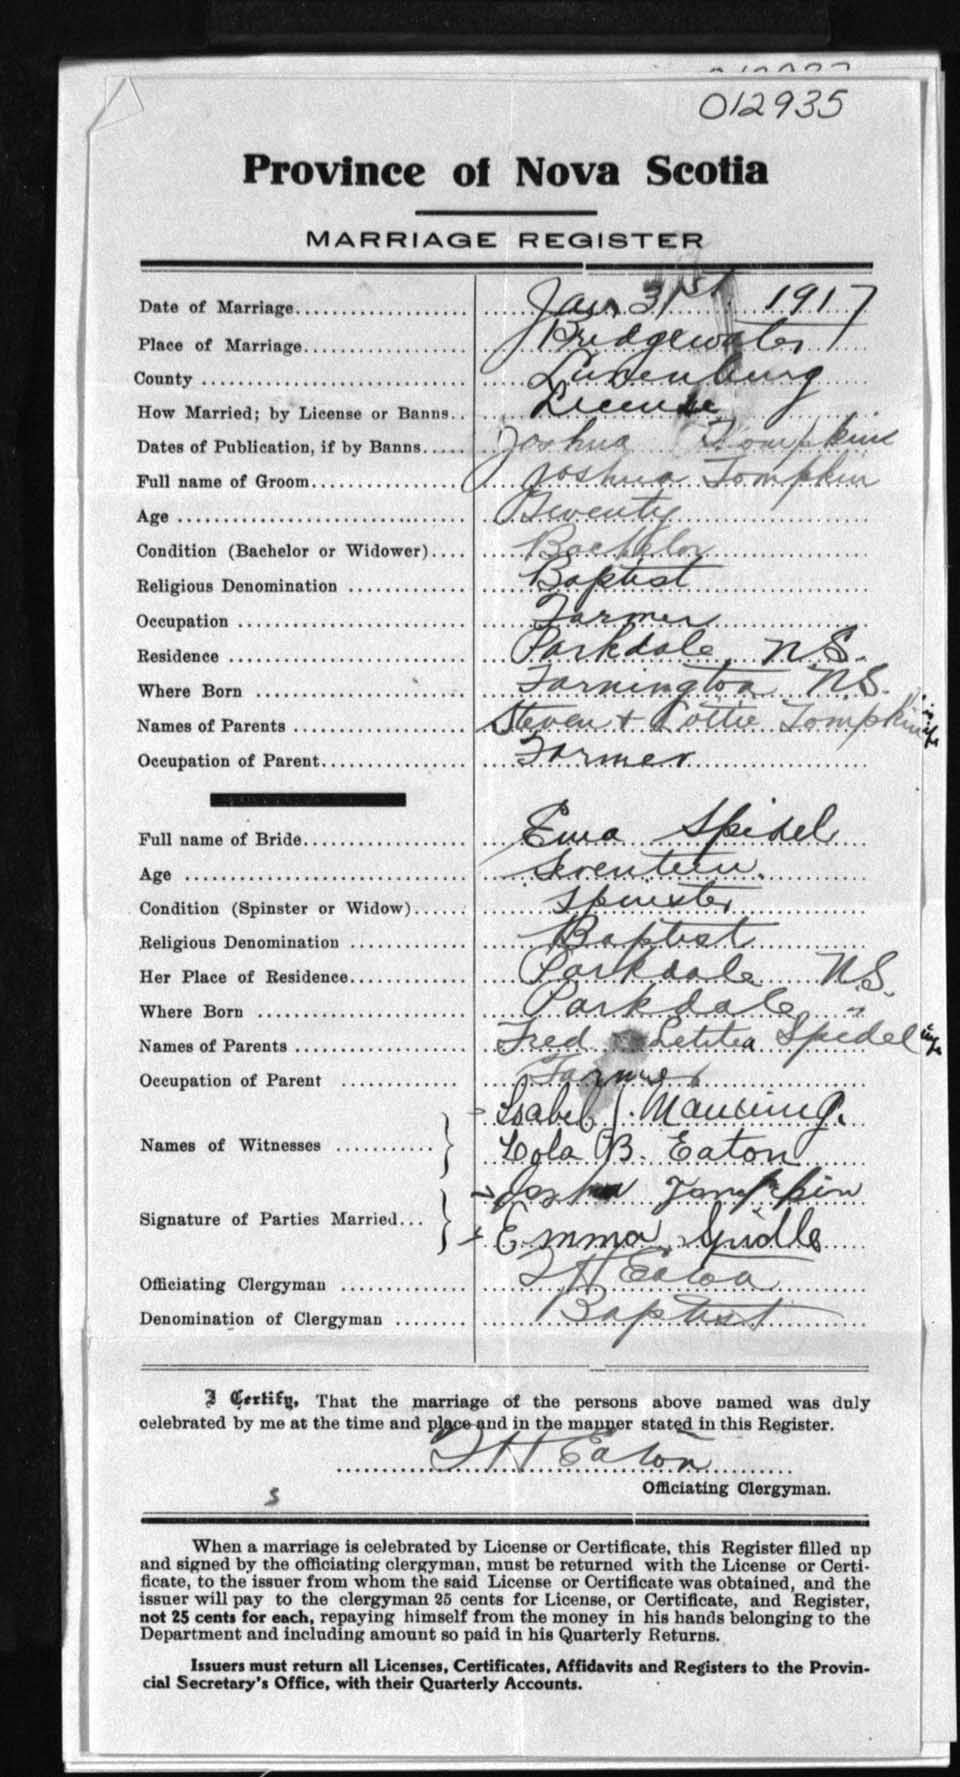 012935
Province of Nova Scotia
MARRIAGE REGISTER
Date of Marriage Jan 31st 1917
Place of Marriage Bridgewater
County Lunenburg
How Married; by License or Banns License
Dates of Publication, if by Banns Joshua Tompkins
Full name of Groom Joshua Tompkin
Age Twenty
Condition (Bachelor or Widower) Bachelor
Religious Denomination Baptist
Occupation Farmer
Residence Parkdale N.S.
Where Born Farmington N.S.
Names of Parents Steven + Lottie Tompkin
Occupation of Parent Farmer
Full name of Bride Ema Spidel
Age Seventeen.
Condition (Spinster or Widow) Spinster
Religious Denomination Baptist
Her Place of Residence Parkdale N.S.
Where Born Parkdale "
Names of Parents Fred Letitea Spidel
Occupation of Parent Farmer
Isabel J. Manning.
Names of Witnesses Lola B. Eaton
Tompkin
Signature of Parties Married Emma Spidle
Officiating Clergyman Eaton
Denomination of Clergyman Baptist
I Certify, That the marriage of the persons above named was duly
celebrated by me at the time and place and in the manner stated in this Register.
H Eaton
Officiating Clergyman.
When a marriage is celebrated by License or Certificate, this Register filled up
and signed by the officiating clergyman, must be returned with the License or Certi-
ficate, to the issuer from whom the said License or Certificate was obtained, and the
issuer will pay to the clergyman 25 cents for License, or Certificate, and Register,
not 25 cents for each, repaying himself from the money in his hands belonging to the
Department and including amount so paid in his Quarterly Returns.
Issuers must return all Licenses, Certificates, Affidavits and Registers to the Provin-
cial Secretary's Office, with their Quarterly Accounts.